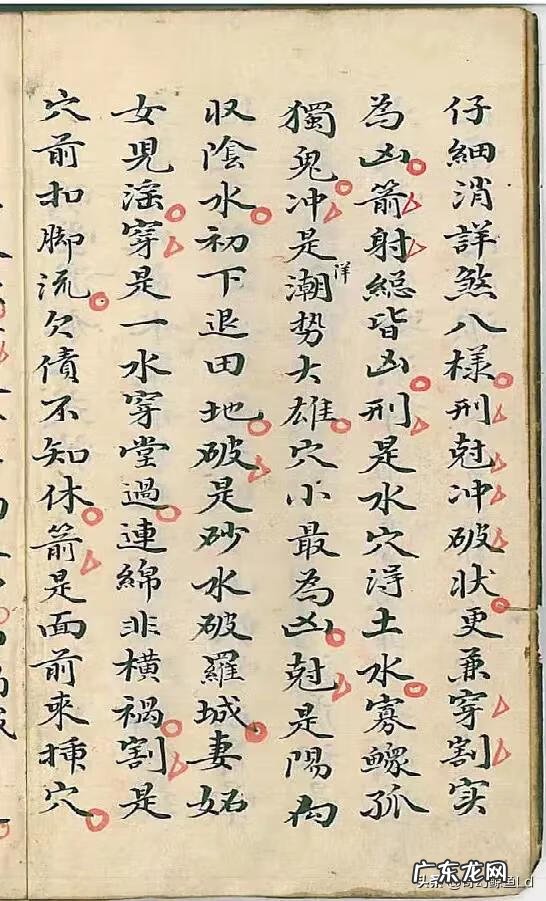 仔細消詳煞八樣刑尅冲破狀更兼穿割实
為凶箭射總皆凶刑是水穴淂土水寡鰥孤
獨鬼冲是潮势大雄穴小最為凶尅是陽向
洋
収陰水初下退田地破是砂水破羅城妻妬
女児滛穿是一水穿堂過連綿非橫禍割是
穴前扣脚流欠債不知休箭是面前來捶穴
广东龙网